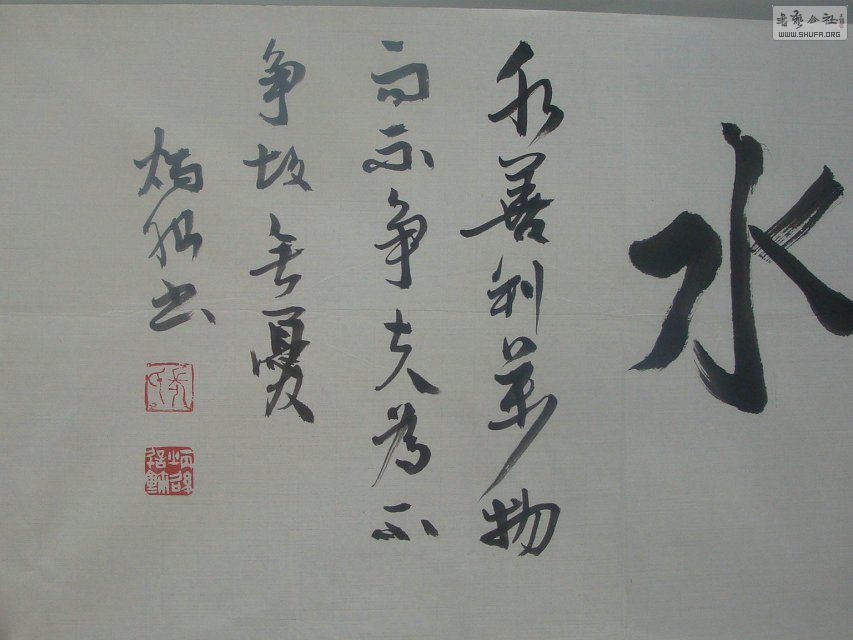 書藝公社
WWW.SHUFA.ORG
水
水善利萬物
而不争夫為不
争故無憂
书